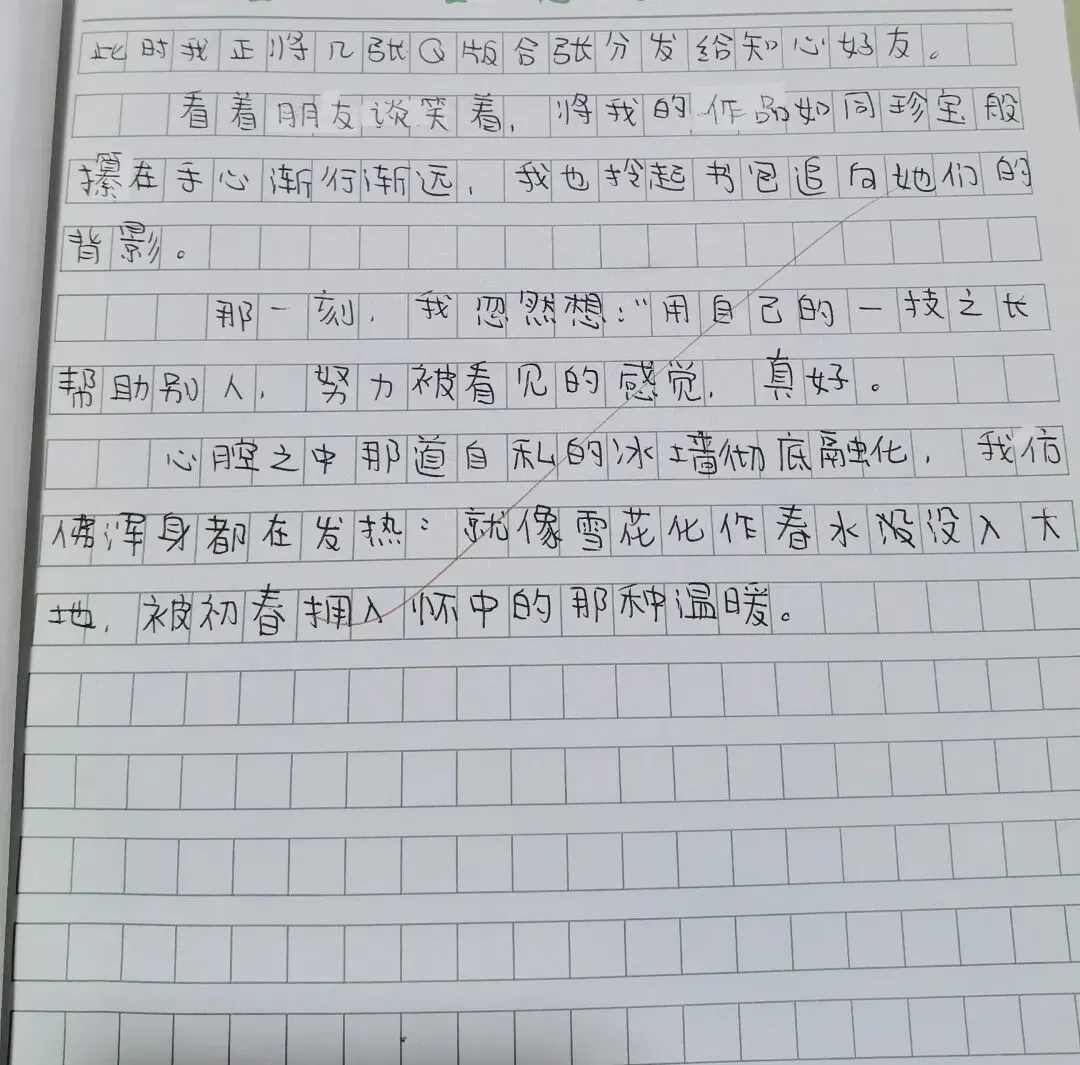 此时我正将几张Q版合张分发给知心好友。
看着朋友谈笑着，将我的作品如同珍宝般
攥在手心渐行渐远，我也拎起书包追向她们的
背影。
那一刻，我忽然想：“用自己的一技之长
帮助别人，努力被看见的感觉，真好。
心腔之中那道自私的冰墙彻底融化，我仿
佛浑身都在发热：就像雪花化作春水没没入大
地，被初春拥入怀中的那种温暖。